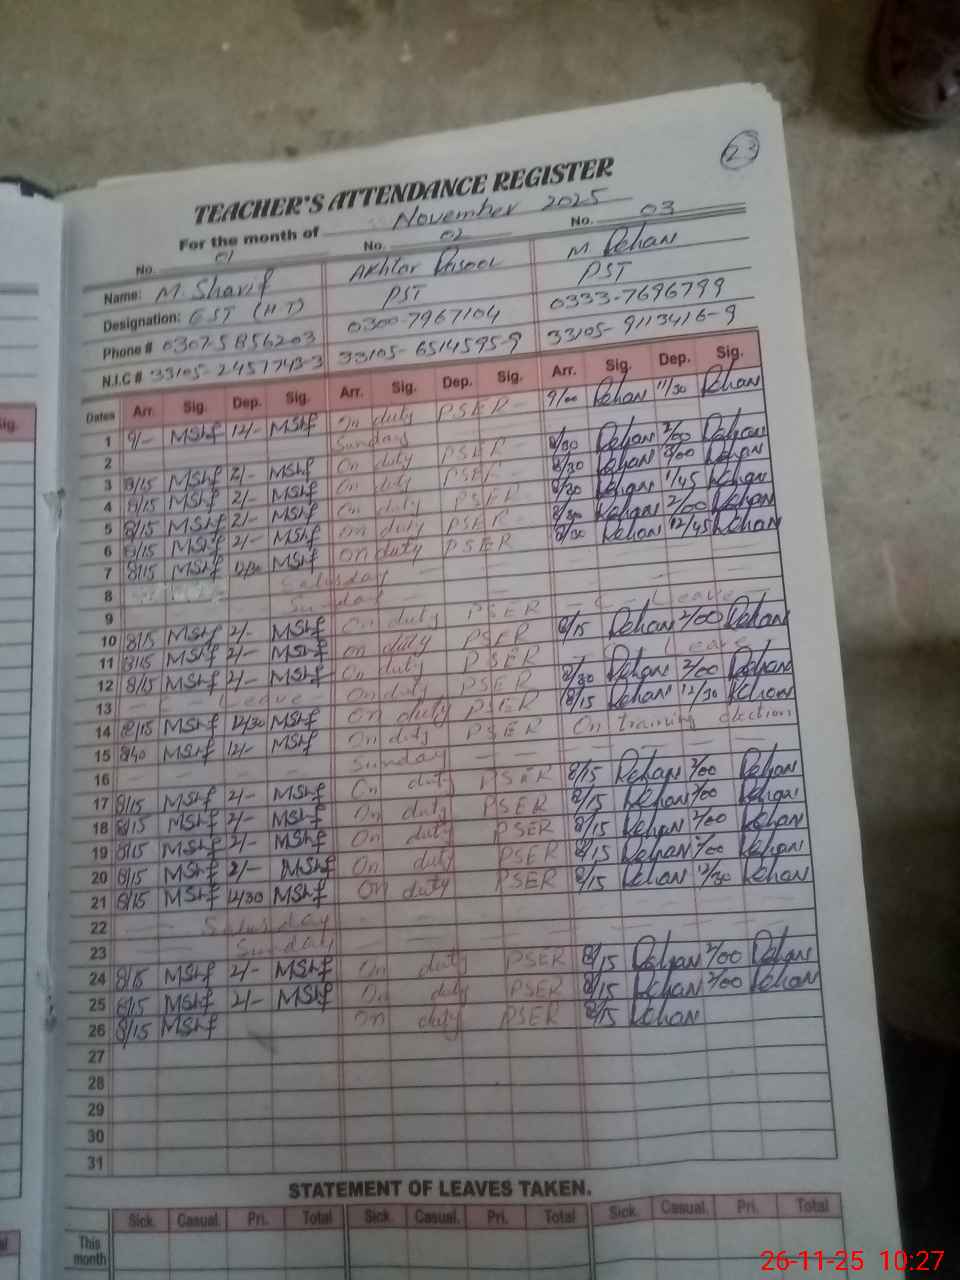 23
TEACHER'S ATTENDANCE REGISTER
For the month of November 2025
No. 01 No. 02 No. 03
Name: M. Sharif Akhtar Rasool M Rehan
Designation: EST (HT) PST PST
Phone # 0307-5856203 0300-7967104 0333-7696799
N.I.C # 33105-2457743-3 33105-6514595-9 33105-9113416-9
Dates Arr. Sig. Dep. Sig. Arr. Sig. Dep. Sig. Arr. Sig. Dep. Sig.
1 9/- MShf 12/- MShf On duty PSER 9/00 Rehan 11/30 Rehan
2 Sunday
3 8/15 MShf 2/- MShf On duty PSER 8/30 Rehan 2/00 Rehan
4 8/15 MShf 2/- MShf On duty PSER 8/30 Rehan 2/00 Rehan
5 8/15 MShf 2/- MShf On duty PSER 8/30 Rehan 11/45 Rehan
6 8/15 MShf 2/- MShf On duty PSER 8/30 Rehan 2/00 Rehan
7 8/15 MShf 12/30 MShf On duty PSER 8/30 Rehan 12/45 Rehan
8 Saturday
9 Sunday
10 8/15 MShf 2/- MShf On duty PSER Leave
11 8/15 MShf 2/- MShf On duty PSER 8/15 Rehan 2/00 Rehan
12 8/15 MShf 2/- MShf On duty PSER Leave
13 Leave On duty PSER 8/30 Rehan 2/00 Rehan
14 8/15 MShf 12/30 MShf On duty PSER 8/15 Rehan 12/30 Rehan
15 8/40 MShf 12/- MShf On duty PSER On training election
16 Sunday
17 8/15 MShf 2/- MShf On duty PSER 8/15 Rehan 2/00 Rehan
18 8/15 MShf 2/- MShf On duty PSER 8/15 Rehan 2/00 Rehan
19 8/15 MShf 2/- MShf On duty PSER 8/15 Rehan 2/00 Rehan
20 8/15 MShf 2/- MShf On duty PSER 8/15 Rehan 2/00 Rehan
21 8/15 MShf 12/30 MShf On duty PSER 8/15 Rehan 12/30 Rehan
22 Saturday
23 Sunday
24 8/15 MShf 2/- MShf On duty PSER 8/15 Rehan 2/00 Rehan
25 8/15 MShf 2/- MShf On duty PSER 8/15 Rehan 2/00 Rehan
26 8/15 MShf On duty PSER 8/15 Rehan
27
28
29
30
31
STATEMENT OF LEAVES TAKEN.
Sick. Casual. Pri. Total Sick. Casual. Pri. Total Sick. Casual. Pri. Total
This month
26-11-25 10:27